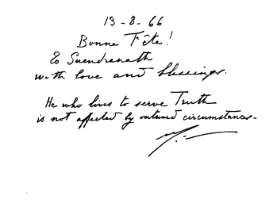 13-8-66
Bonne Fête!
to Surendranath
with love and blessings.
He who lives to serve Truth
is not affected by outward circumstances.